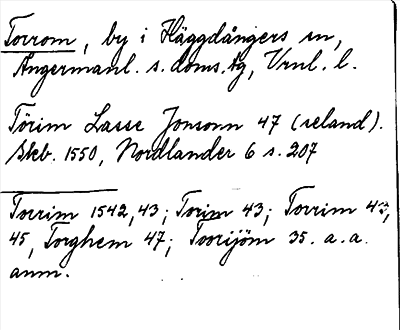 Torrom, by i Häggdångers sn,
Ångermanl. s. doms.tg, Vrnl. l.
Törim Lasse Jonsonn 47 (seland).
Skb. 1550, Nordlander 6 s. 207
Torrim 1542, 43; Torim 43; Torrim 43,
45, Torghem 47; Toorijöm 35. a. a.
anm.